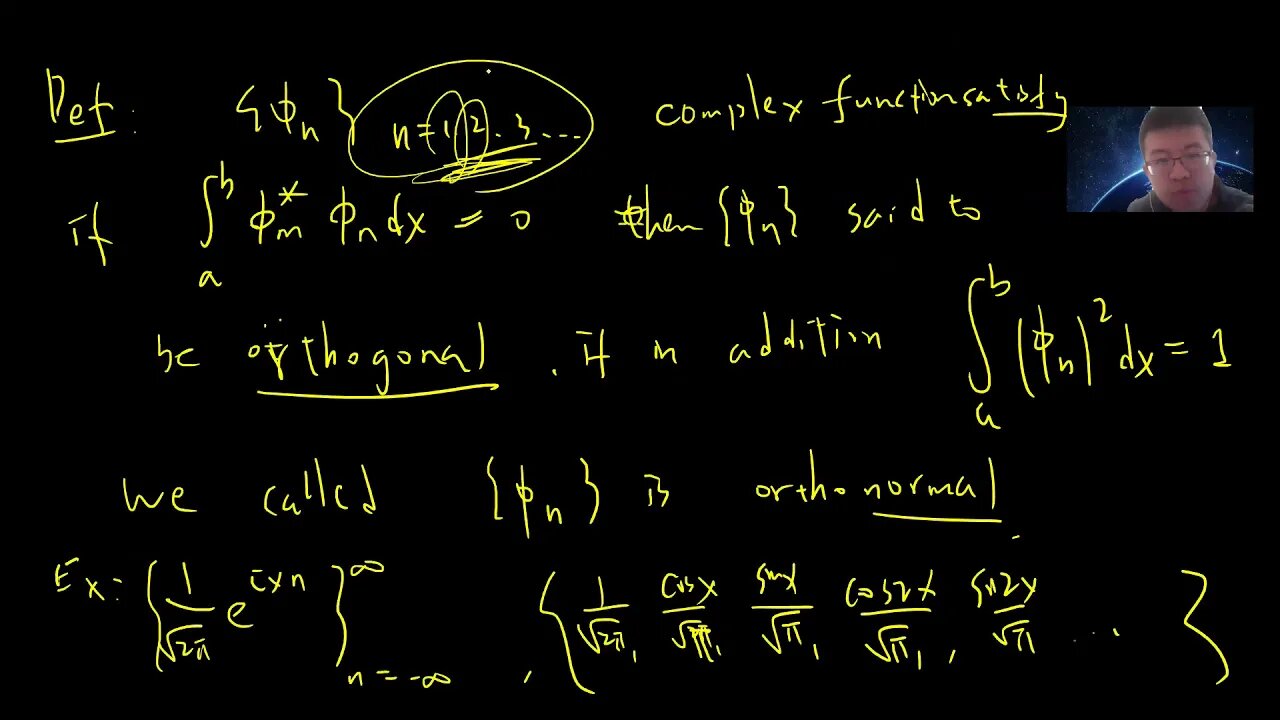 Def: {ϕn} n=1,2,3,... complex function satisfy
if ∫_a^b ϕ_m^* ϕ_n dx = 0 then {ϕ_n} said to
be orthogonal. if in addition ∫_a^b |ϕ_n|^2 dx = 1
we called {ϕ_n} is orthonormal.
Ex: {1/√2π e^{ixn}}_{n=-∞}^{∞}, {1/√2π, cosx/√π, sinx/√π, cos2x/√π, sin2x/√π ... }